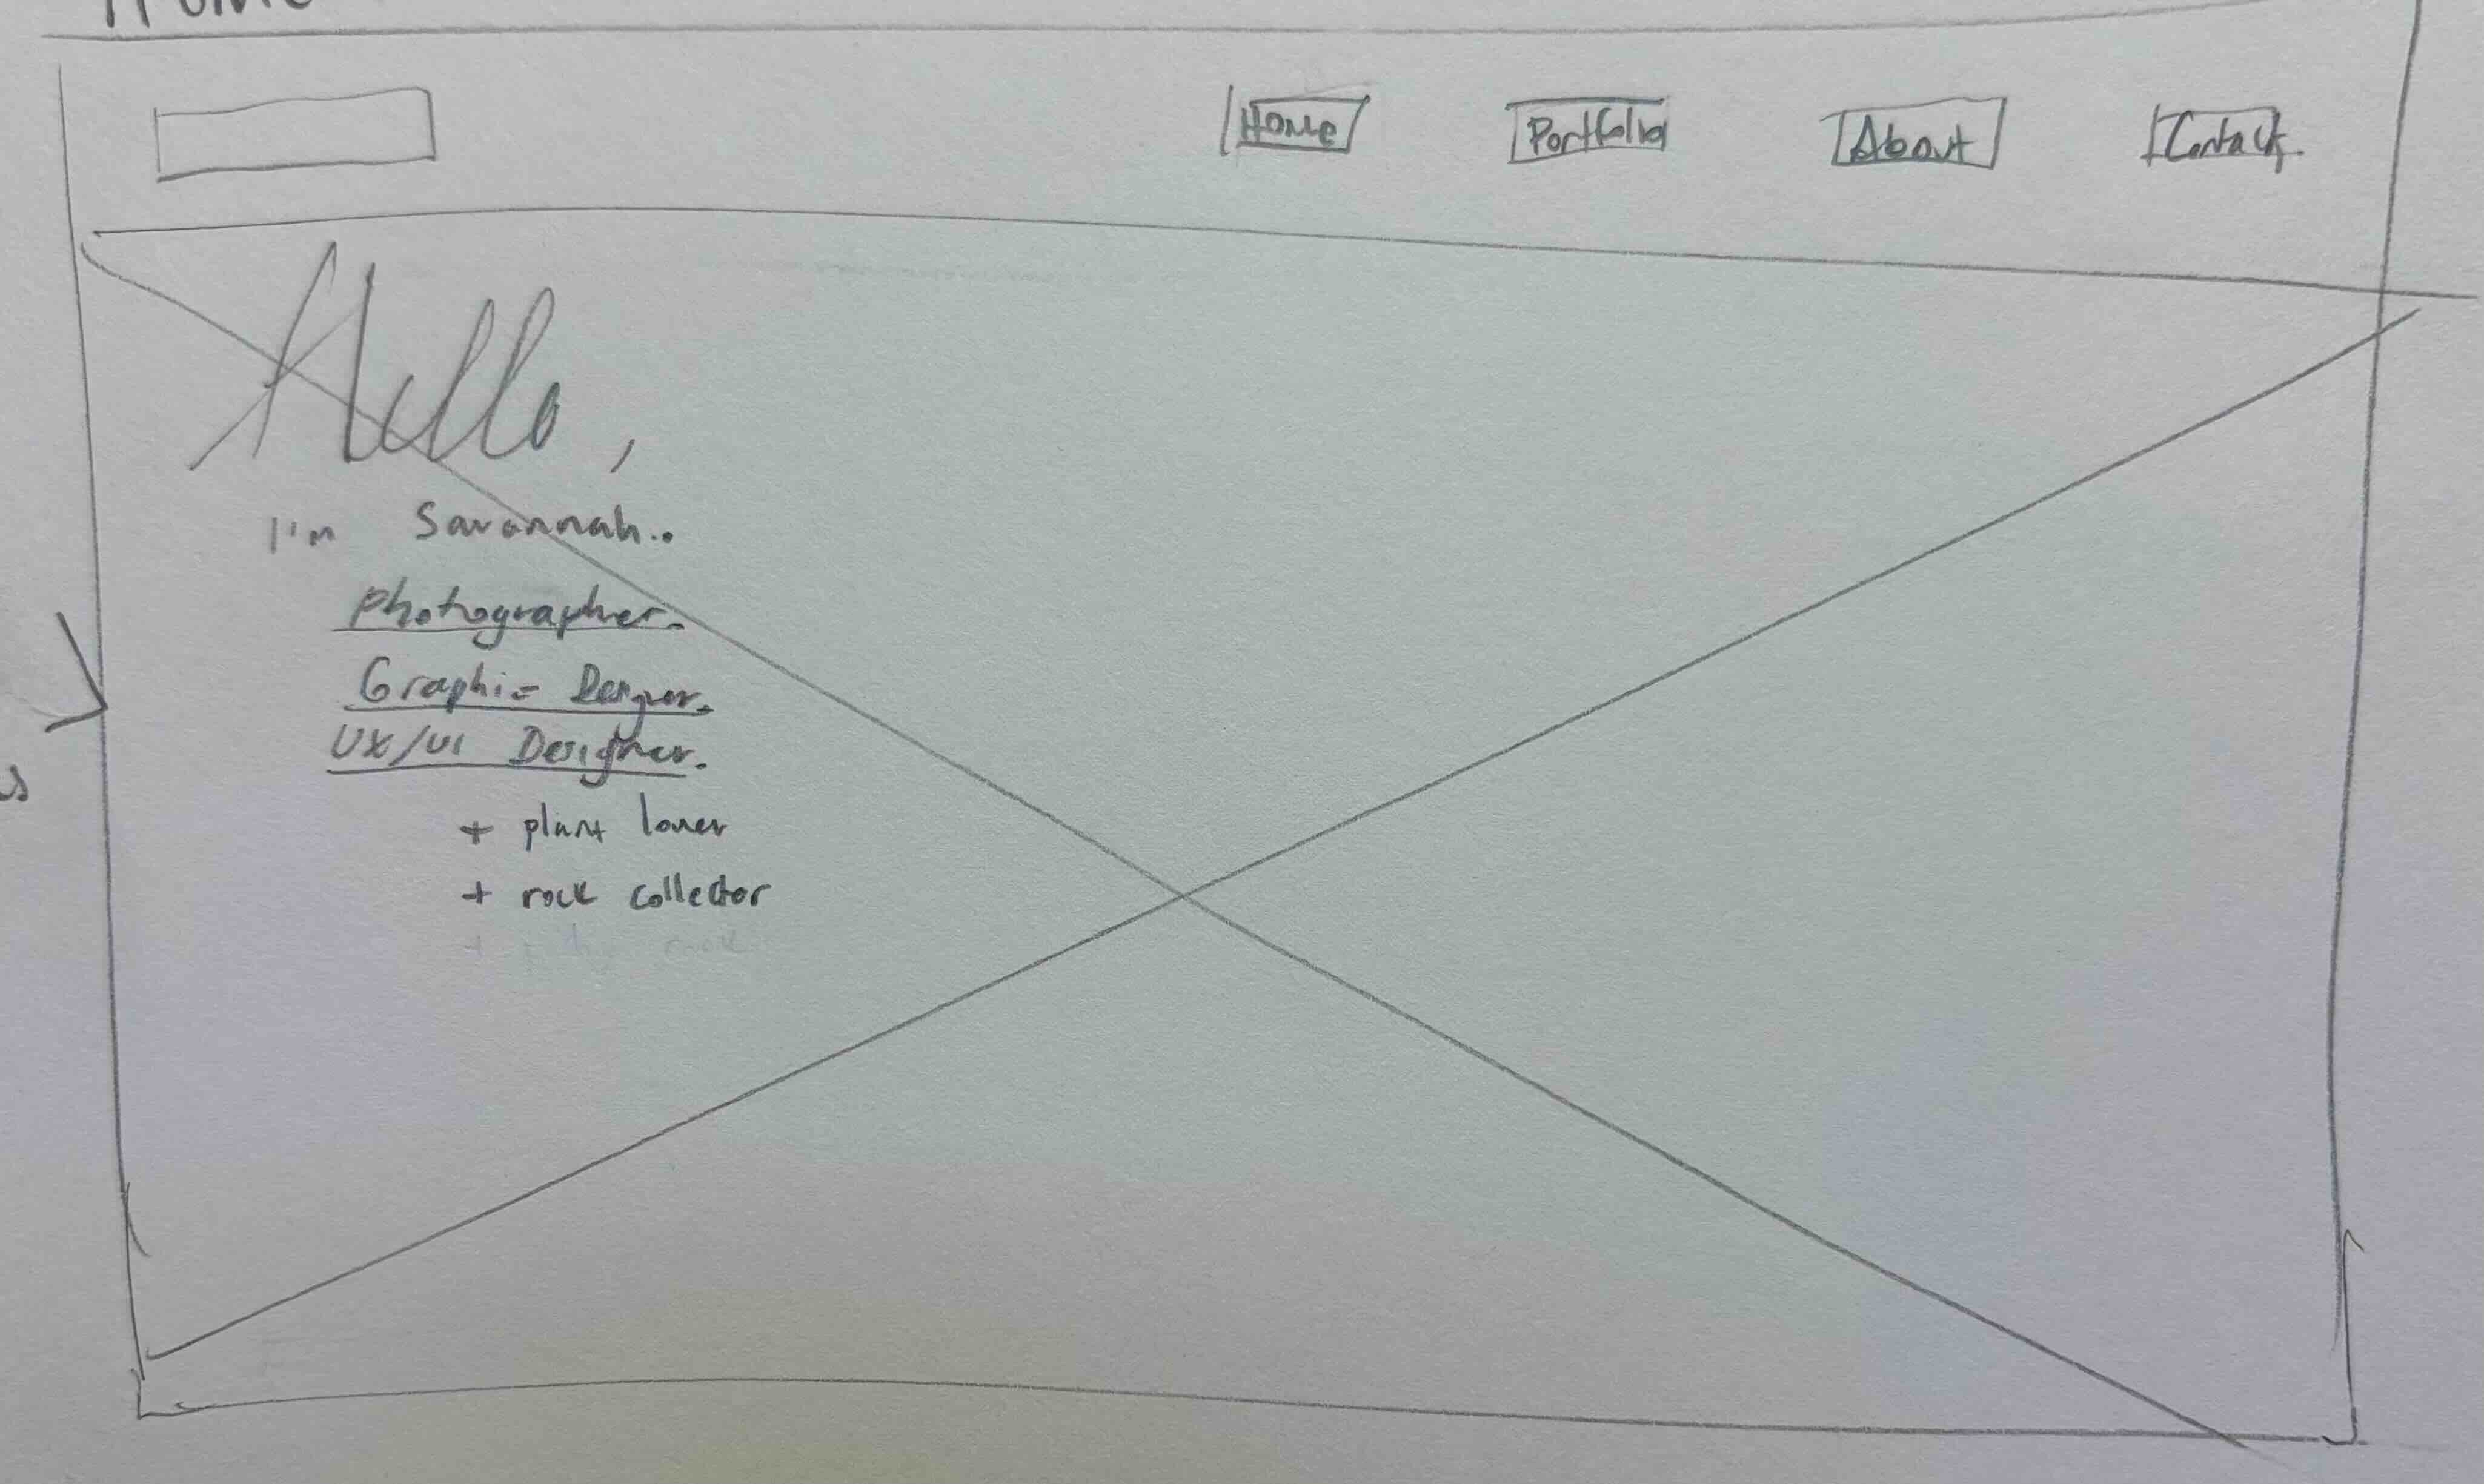 Home
Home Portfolio About Contact
Hello,
I'm Savannah.
Photographer.
Graphic Designer.
UX/UI Designer.
+ plant lover
+ rock collector